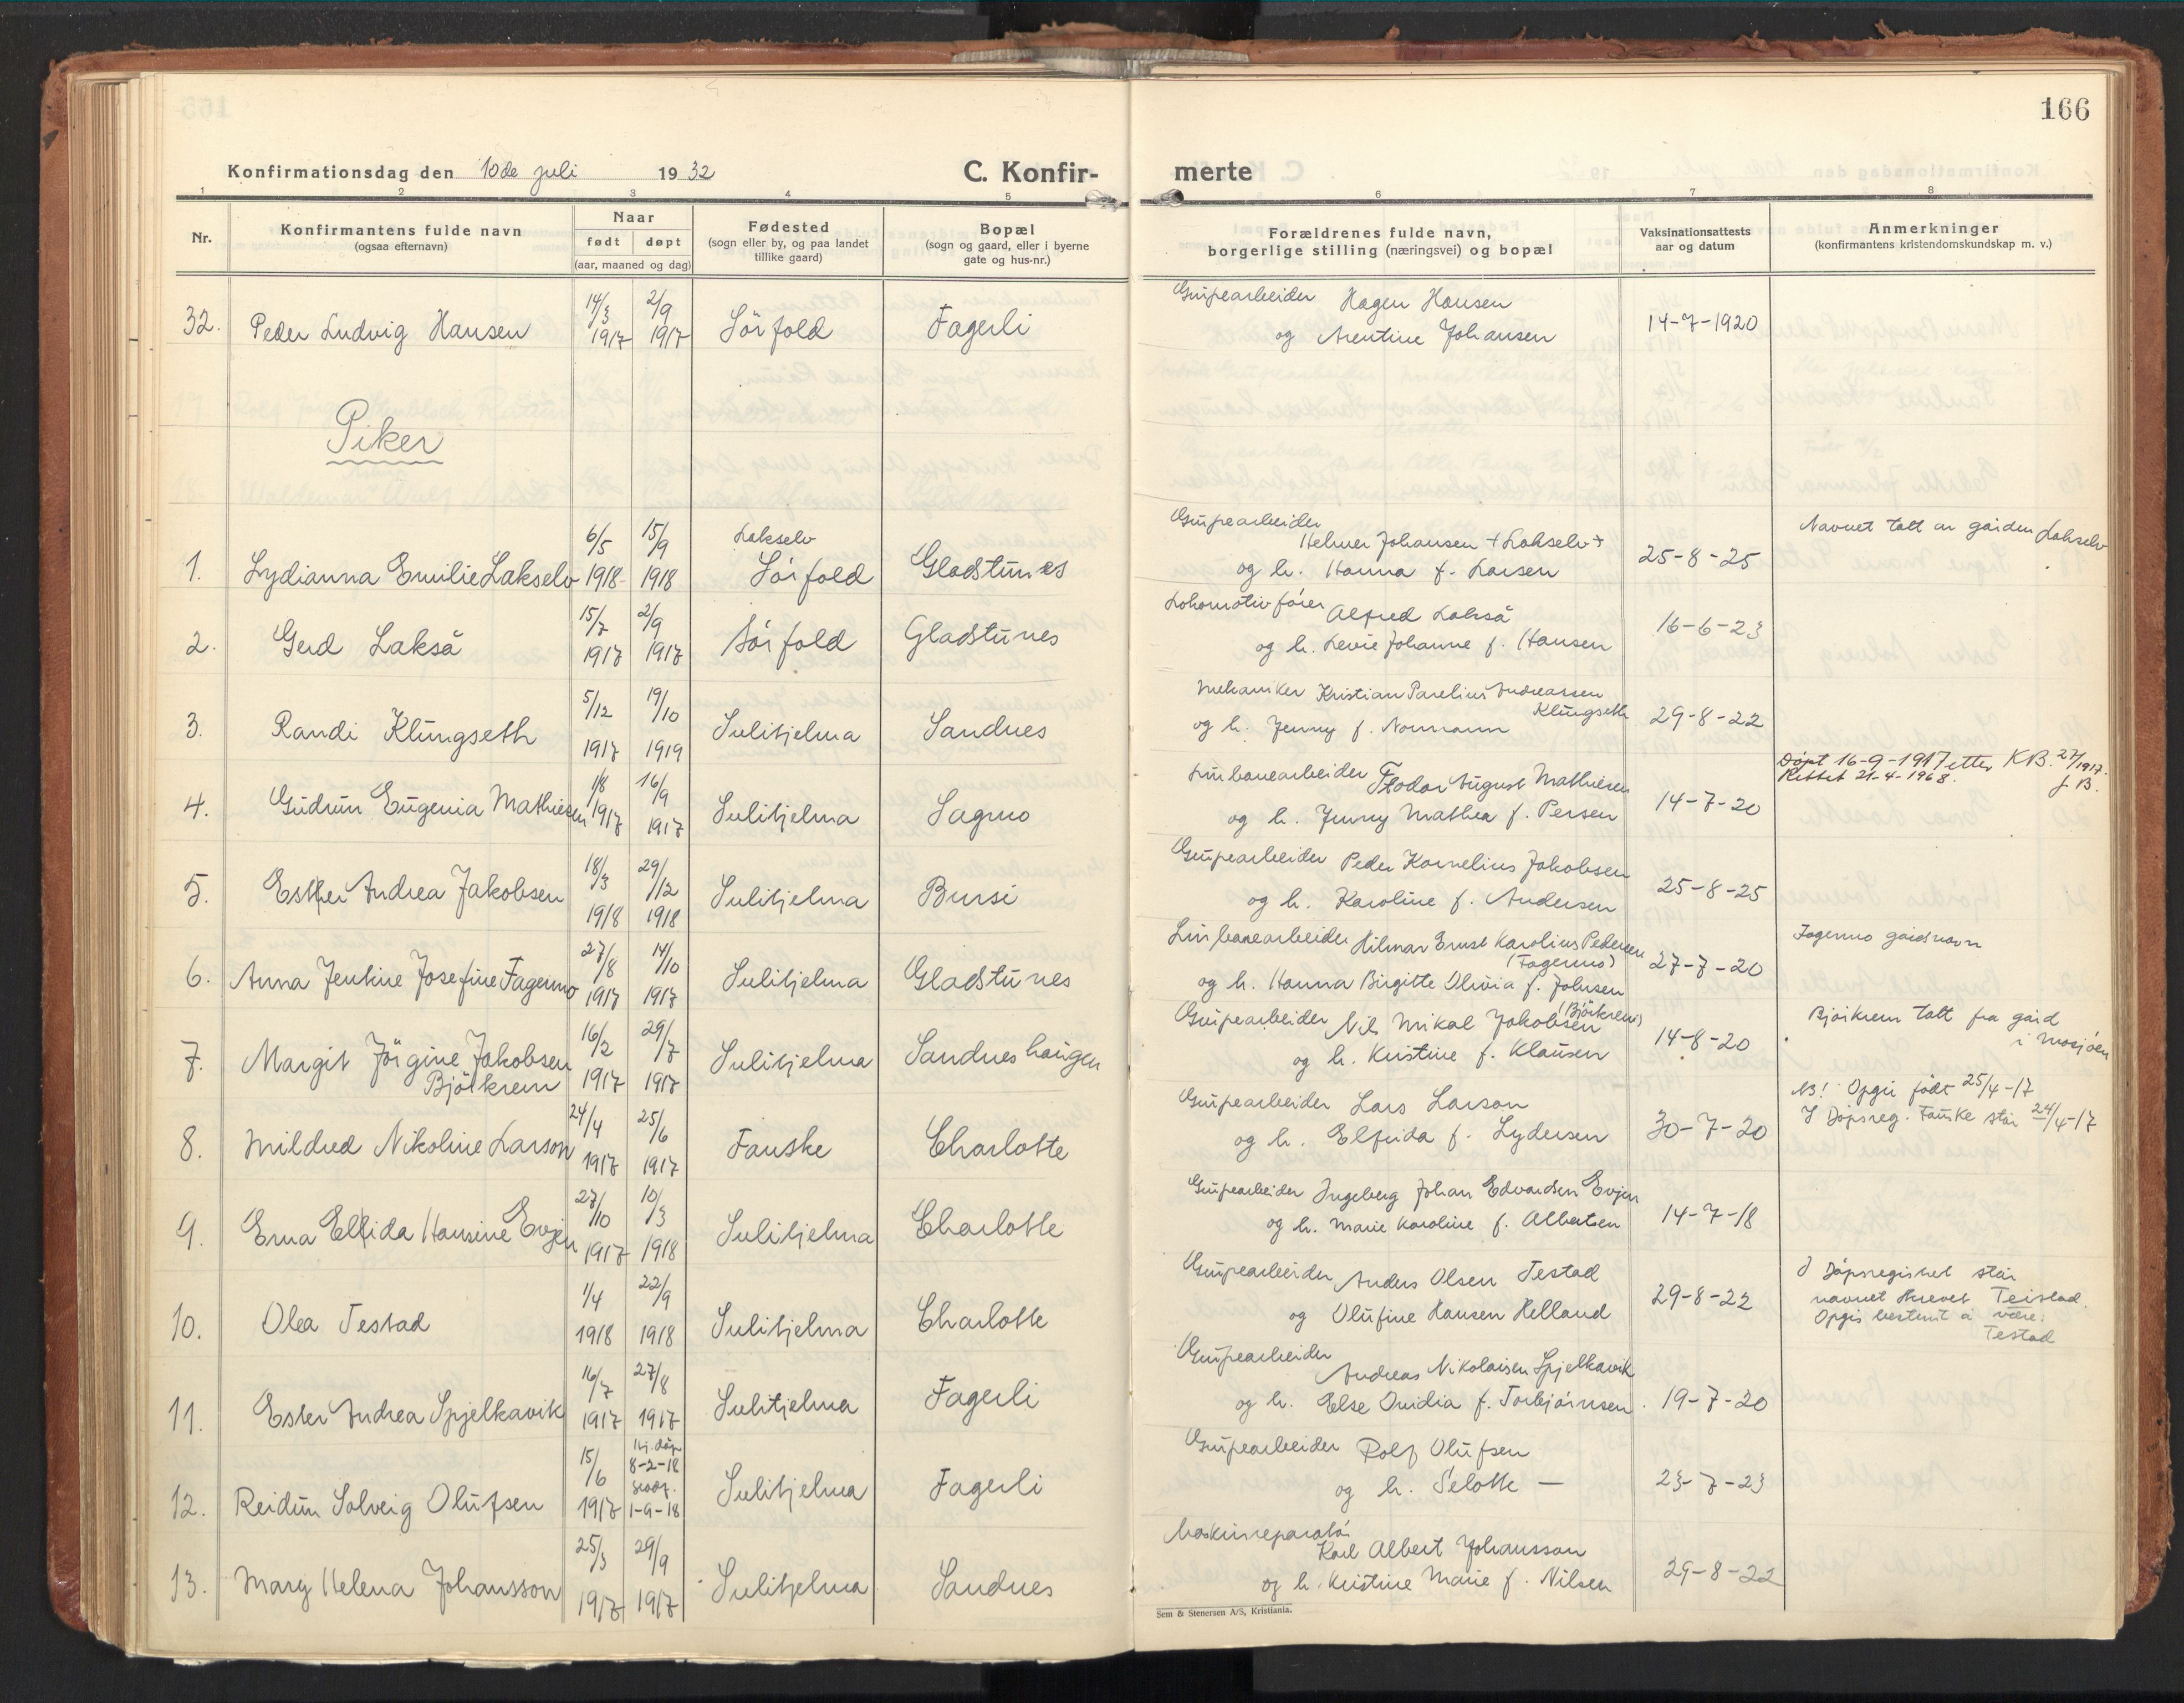 166
Konfirmationsdag den 10de juli 1932 C. Konfir-merte
1 2 3 4 5 6 7 8
Nr. Konfirmantens fulde navn (ogsaa efternavn) Naar født døpt (aar, maaned og dag) Fødested (sogn eller by, og paa landet tillike gaard) Bopæl (sogn og gaard, eller i byerne gate og hus-nr.) Forældrenes fulde navn, borgerlige stilling (næringsvei) og bopæl Vaksinationsattests aar og datum Anmerkninger (konfirmantens kristendomskundskap m. v.)
32. Peder Ludvig Hansen 14/3 1917 2/9 1917 Sörfold Fagerli Grupearbeider Hagen Hansen og Arentine Johansen 14-7-1920
Piker
1. Lydianna Emilie Lakselv 6/5 1918 15/9 1918 Lakselv Sörfold Gladstunes Grupearbeider Helmer Johansen + Lakselv + og h. Hanna f. Larsen 25-8-25 Navnet tatt av gården Lakselv
2. Gerd Lakså 15/7 1917 2/9 1917 Sörfold Gladstunes Lokomotivfører Alfred Lakså og h. Levie Johanne f. Hansen 16-6-23
3. Randi Klungseth 5/12 1917 19/10 1919 Sulitjelma Sandnes Mekaniker Kristian Parelius Andreassen Klungseth og h. Jenny f. Normann 29-8-22
4. Gudrun Eugenia Mathiesen 1/8 1917 16/9 1917 Sulitjelma Sagmo Linbanearbeider Fjodor August Mathiesen og h. Jenny Mathea f. Persen 14-7-20 Döpt 16-9-1917 etter KB. 27/1917. Rettet 21-4-1968. J B.
5. Esther Andrea Jakobsen 18/3 1918 29/12 1918 Sulitjelma Bursi Grupearbeider Peder Kornelius Jakobsen og h. Karoline f. Andersen 25-8-25
6. Anna Jentine Josefine Fagermo 27/8 1917 14/10 1917 Sulitjelma Gladstunes Linbanearbeider Hilmar Ernst Karolius Pedersen (Fagermo) og h. Hanna Birgitte Olivia f. Johnsen 27-7-20 Fagermo gårdsnavn
7. Margit Jörgine Jakobsen Björkrem 16/2 1917 29/7 1917 Sulitjelma Sandneshaugen Grupearbeider Nils Mikal Jakobsen (Björkrem) og h. Kristine f. Klausen 14-8-20 Björkrem tatt fra gård i Mosjöen
8. Mildred Nikoline Larson 24/4 1917 25/6 1917 Fauske Charlotte Grupearbeider Lars Larson og h. Elfrida f. Lydersen 30-7-20 NB! Opgir født 25/4-17 I Döpsreg. Fauske står 24/4-17
9. Erna Elfida Hansine Evjen 27/10 1917 10/3 1918 Sulitjelma Charlotte Grupearbeider Ingeberg Johan Edvardsen Evjen og h. Marie Karoline f. Albertsen 14-7-18
10. Olea Testad 1/4 1918 22/9 1918 Sulitjelma Charlotte Grupearbeider Anders Olsen Testad og Olufine Hansen Helland 29-8-22 I Döpsregistret står navnet skrevet Teistad. Opgis bestemt å være: Testad
11. Ester Andrea Spjelkavik 16/7 1917 27/8 1917 Sulitjelma Fagerli Grupearbeider Andreas Nikolaisen Spjelkavik og h. Else Ovidia f. Torbjörnsen. 19-7-20
12. Reidun Solveig Olufsen 15/6 1917 Hj. döp 8-2-18 1-9-18 Sulitjelma Fagerli Grupearbeider Rolf Olufsen og h. Selotte — 23-7-23
13. Mary Helena Johansson 25/3 1917 29/9 1917 Sulitjelma Sandnes Maskinreparatör Karl Albert Johansson og h. Kristine Marie f. Nilsen 29-8-22
Sem & Stenersen A/S, Kristiania.